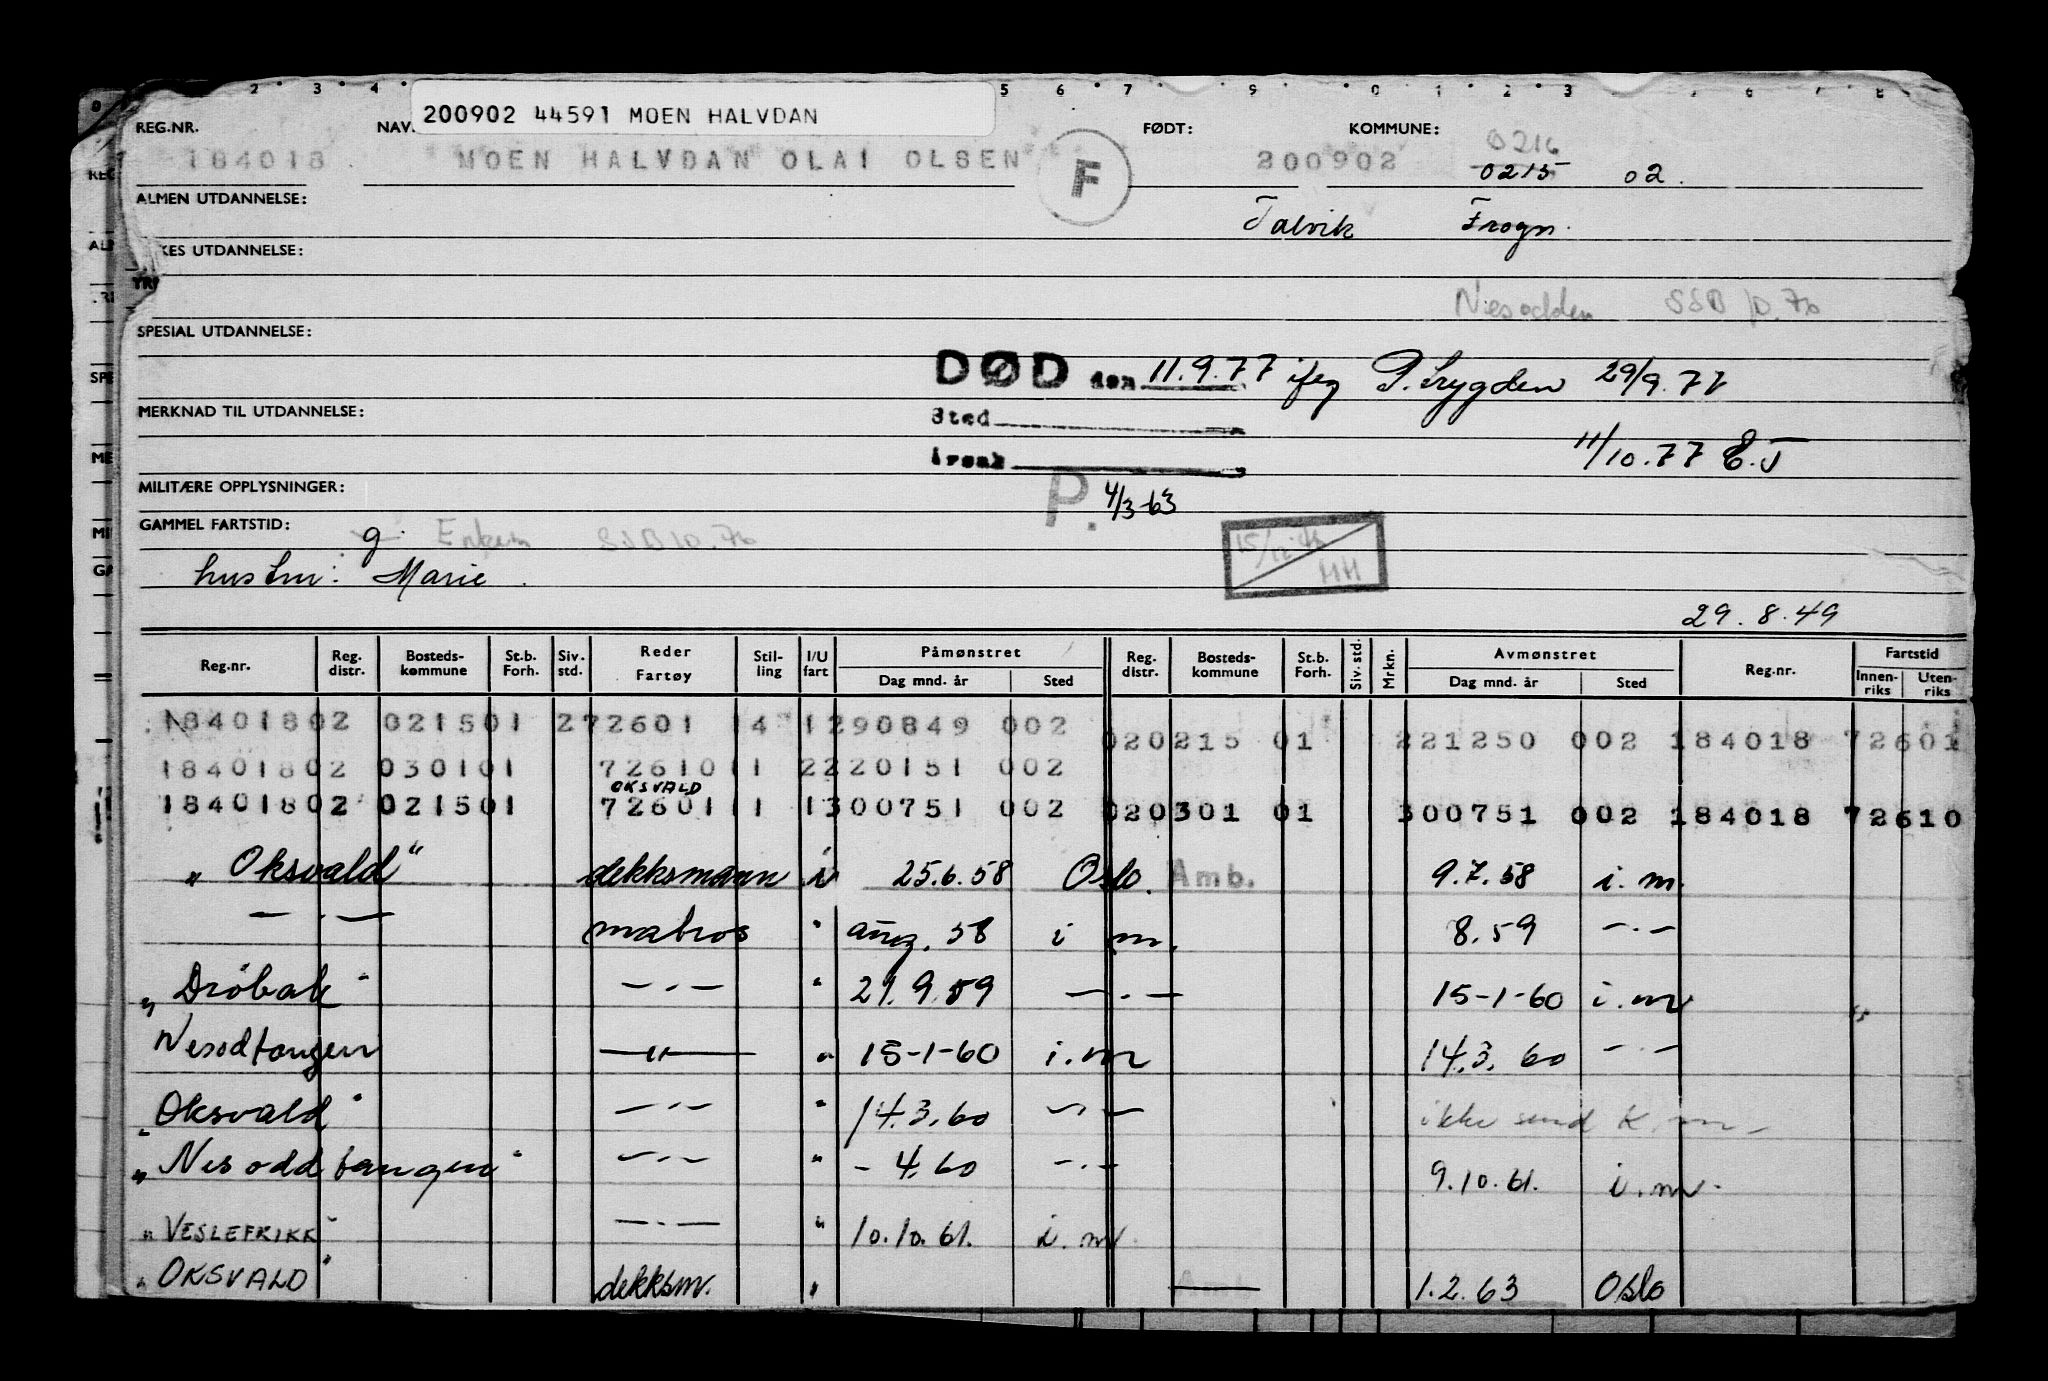 200902 44591 MOEN HALVDAN
REG.NR. NAV. FØDT: KOMMUNE:
0216
184018 MOEN HALVDAN OLAI OLSEN F 200902 0215 02.
ALMEN UTDANNELSE:
Talvik Frogn.
KES UTDANNELSE:
Nesodden SSB 10.76
SPESIAL UTDANNELSE:
DØD den 11.9.77 iføg P. trygden 29/9.77
MERKNAD TIL UTDANNELSE:
Sted
11/10.77 E.J
Årsak
MILITÆRE OPPLYSNINGER:
P. 4/3-63
GAMMEL FARTSTID:
g. Enkem SSB 10.76
hustru: Marie.
HH
29.8.49
Reg.nr. Reg. distr. Bosteds-kommune St.b. Forh. Siv. std. Reder Fartøy Stil-ling I/U fart Påmønstret Dag mnd. år Sted Reg. distr. Bosteds-kommune St.b. Forh. Siv. std. Mrkn. Avmønstret Dag mnd. år Sted Reg.nr. Fartstid Innen-riks Uten-riks
18401802 021501 272601 14 1290849 002 020215 01 221250 002 184018 72601
18401802 030101 7261011 2220151 002
OKSVALD
18401802 021501 7260111 1300751 002 020301 01 300751 002 184018 72610
„Oksvald" dekksmann i 25.6.58 Oslo. Amb. 9.7.58 i.m.
— . — matros " aug. 58 i m. 8.59 — . —
„Drøbak" — . — " 21.9.59 — . — 15-1-60 i.m
Nesodtangen — " — " 15-1-60 i.m 14.3.60 — . —
„Oksvald" — . — " 14.3.60 — . — ikke send K.m
„Nesoddtangen" — . — " - 4.60 — . — 9.10.61. i.m.
„VESLEFRIKK" — . — " 10.10.61. i.m.
„OKSVALD" dekksm. " — 1.2.63 Oslo